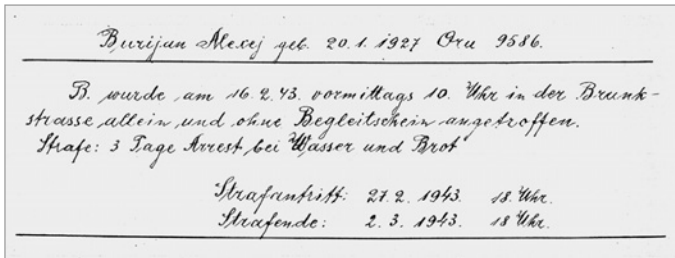 Burijan Alexej geb. 20.1.1927 Oru 9586.
B. wurde am 16.2.43. vormittags 10. Uhr in der Brunk-
strasse allein und ohne Begleitschein angetroffen.
Strafe: 3 Tage Arrest bei Wasser und Brot
Strafantritt: 27.2.1943. 18. Uhr.
Strafende: 2.3.1943. 18 Uhr.